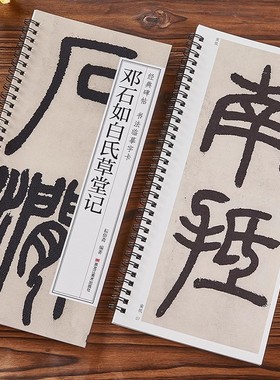 石
澗
经典碑帖 书法临摹字卡
邓石如白氏草堂记
南抵